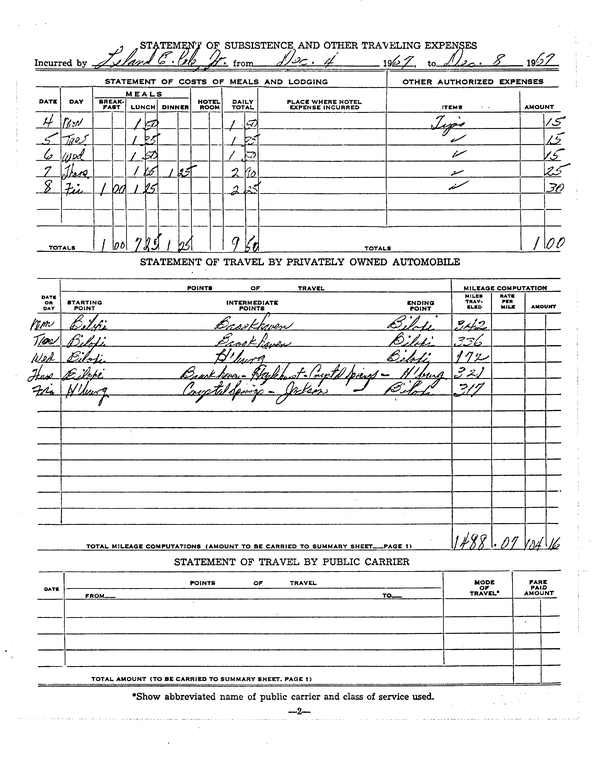 STATEMENT OF SUBSISTENCE AND OTHER TRAVELING EXPENSES
Incurred by Leland E. Cole, Jr. from Dec. 4 1967, to Dec. 8 1967
STATEMENT OF COSTS OF MEALS AND LODGING OTHER AUTHORIZED EXPENSES
DATE DAY MEALS BREAKFAST LUNCH DINNER HOTEL ROOM DAILY TOTAL PLACE WHERE HOTEL EXPENSE INCURRED ITEMS AMOUNT
4 Mon 1 50 1 50 Tips 15
5 Tues 1 25 1 25 ✓ 15
6 Wed 1 50 1 50 ✓ 15
7 Thurs 1 25 2 90 ✓ 25
8 Fri 1 00 1 25 2 25 ✓ 30
TOTALS 1 00 7 25 1 25 9 50 TOTALS 1 00
STATEMENT OF TRAVEL BY PRIVATELY OWNED AUTOMOBILE
POINTS OF TRAVEL MILEAGE COMPUTATION
DATE OR DAY STARTING POINT INTERMEDIATE POINTS ENDING POINT MILES TRAVELED RATE PER MILE AMOUNT
Mon Biloxi Brookhaven Biloxi 342
Tues Biloxi Brookhaven Biloxi 336
Wed Biloxi H'burg Biloxi 172
Thurs Biloxi Brookhaven - Hazlehurst - Crystal Springs - H'burg 321
Fri H'burg Crystal Springs - Jackson - Biloxi 317
TOTAL MILEAGE COMPUTATIONS (AMOUNT TO BE CARRIED TO SUMMARY SHEET PAGE 1) 1488 .07 104 16
STATEMENT OF TRAVEL BY PUBLIC CARRIER
DATE POINTS OF TRAVEL MODE OF TRAVEL* FARE PAID AMOUNT
FROM TO
TOTAL AMOUNT (TO BE CARRIED TO SUMMARY SHEET, PAGE 1)
*Show abbreviated name of public carrier and class of service used.
—2—